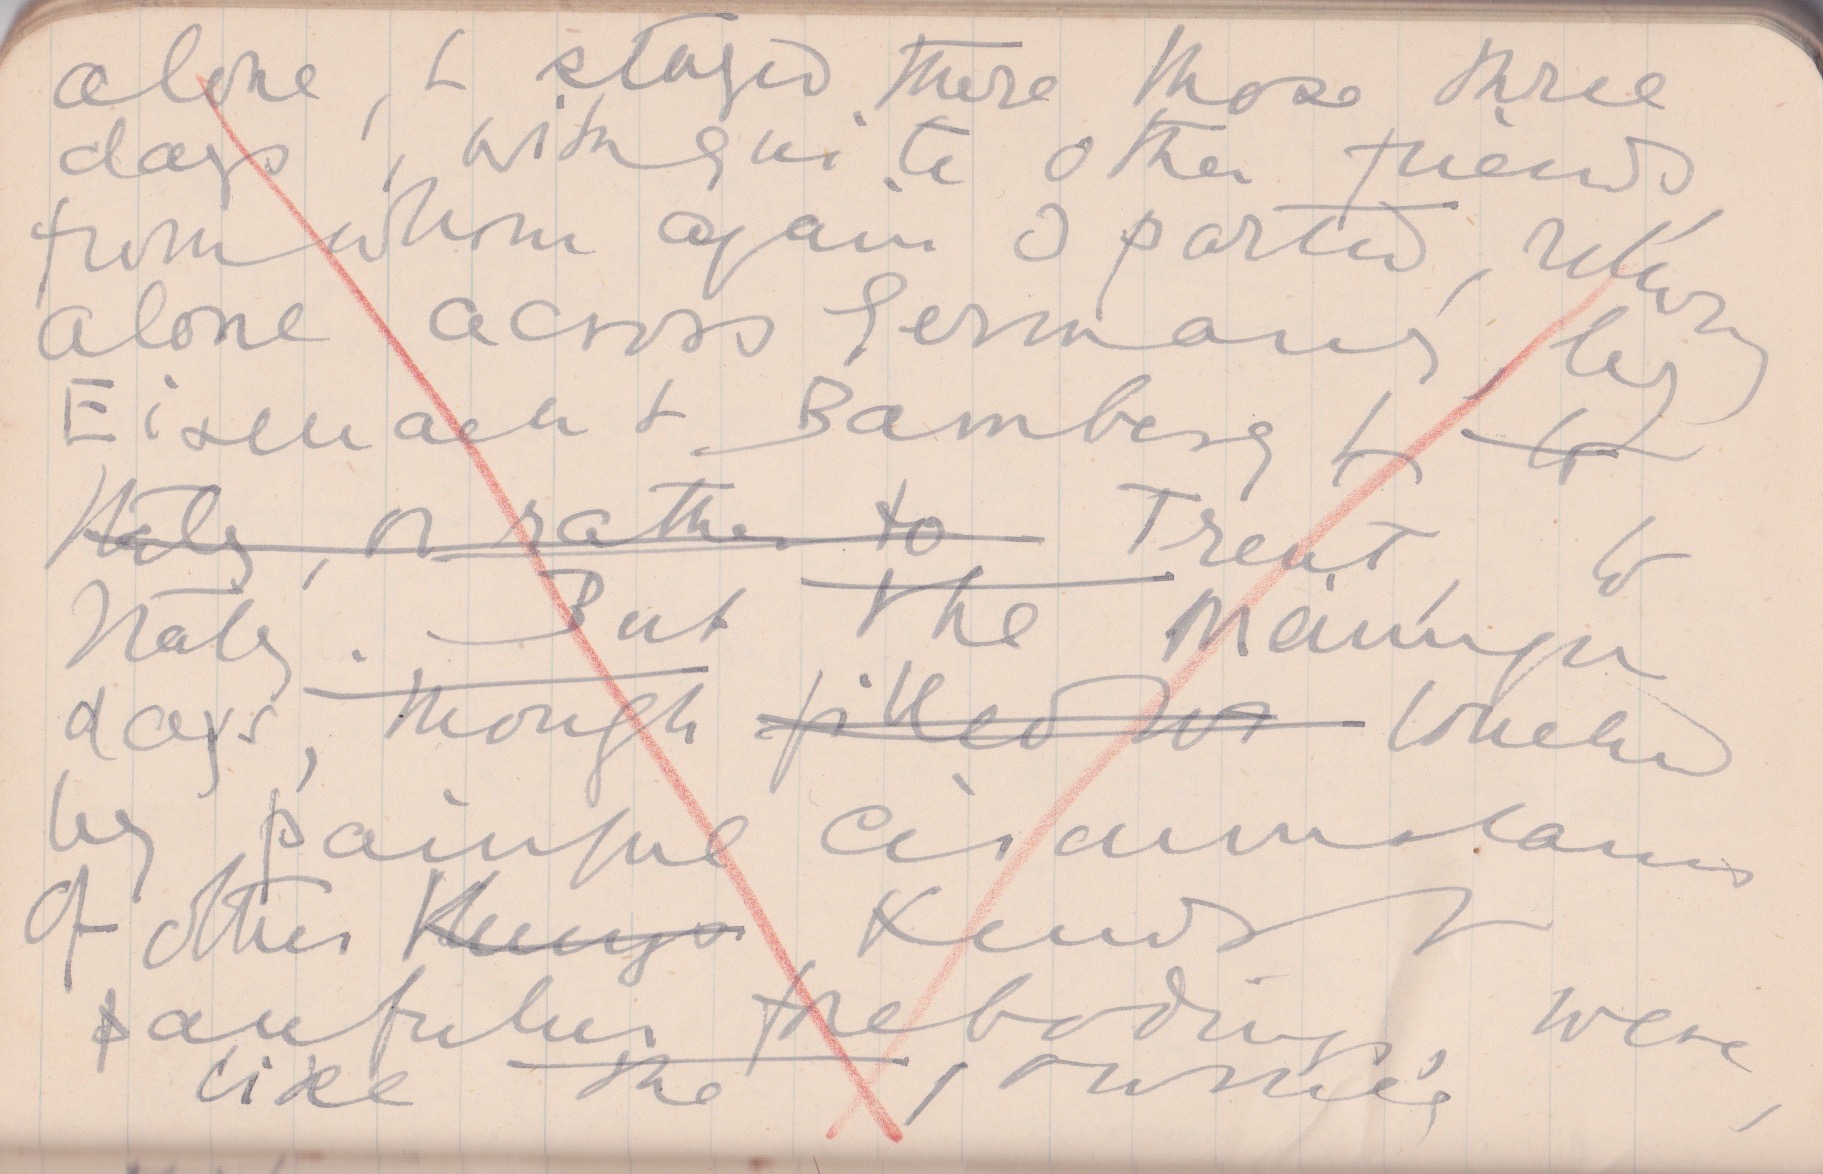 alone, & stayed there those three
days, with quite other friends
from whom again I parted, return
alone across Germany by
Eisenach & Bamberg & to
Italy, or rather to Trent, to
Italy. But the Meiningen
days, though filled w touched
by painful circumstances
of other things Kinds &
painfuller forebodings, were,
like the journey